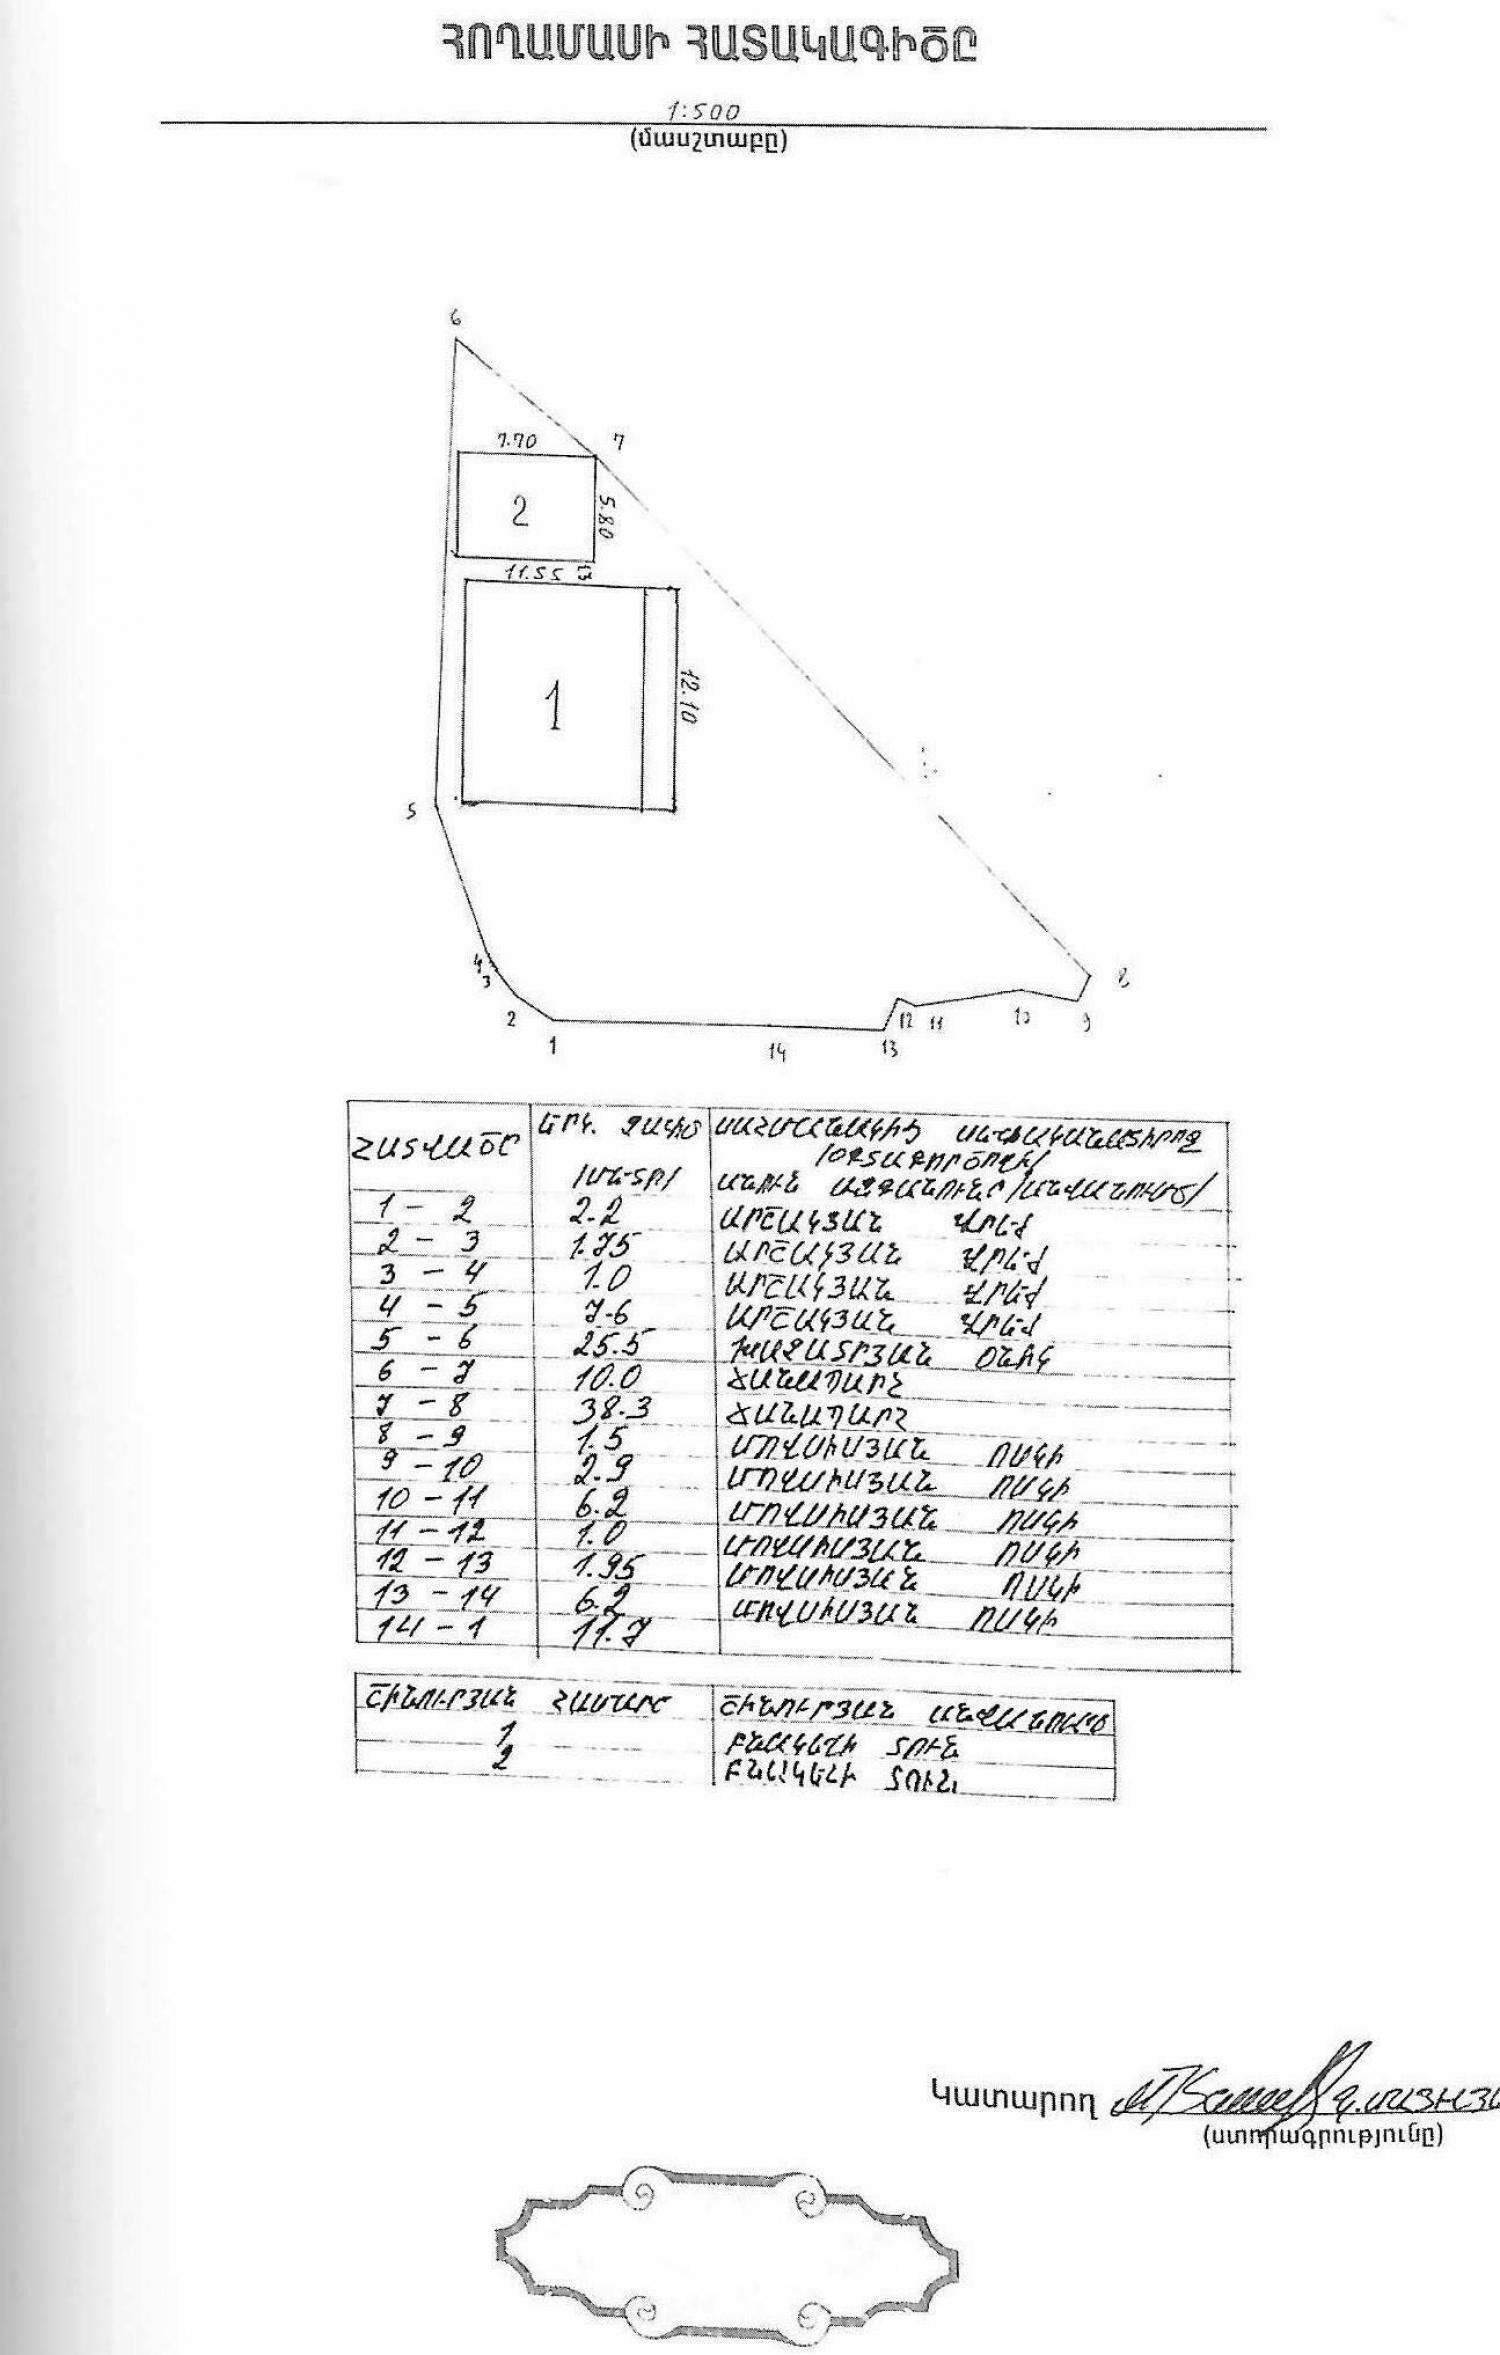 ՀՈՂԱՄԱՍԻ ՀԱՏԱԿԱԳԻԾԸ
1:500
(մասշտաբը)
6
7.70 7
2 5.80
11.55
1 12.10
5
4
3
8
2 12 11 10 9
1 14 13
ՀԱՏՎԱԾԸ ԵՐԿ. ՉԱՓԸ /ՄԵՏՐ/ ՍԱՀՄԱՆԱԿԻՑ ՍԵՓԱԿԱՆԱՏԻՐՈՋ
/ՕԳՏԱԳՈՐԾՈՂԻ/
ԱՆՈՒՆ ԱԶԳԱՆՈՒՆԸ /ԱՆՎԱՆՈՒՄԸ/
1 - 2 2.2 ԱՐՇԱԿՅԱՆ ՎՐԵԺ
2 - 3 1.75 ԱՐՇԱԿՅԱՆ ՎՐԵԺ
3 - 4 1.0 ԱՐՇԱԿՅԱՆ ՎՐԵԺ
4 - 5 7.6 ԱՐՇԱԿՅԱՆ ՎՐԵԺ
5 - 6 25.5 ԽԱՉԱՏՐՅԱՆ ՕՆԻԿ
6 - 7 10.0 ՃԱՆԱՊԱՐՀ
7 - 8 38.3 ՃԱՆԱՊԱՐՀ
8 - 9 1.5 ՄՈՎՍԻՍՅԱՆ ՈՍԿԻ
9 - 10 2.9 ՄՈՎՍԻՍՅԱՆ ՈՍԿԻ
10 - 11 6.2 ՄՈՎՍԻՍՅԱՆ ՈՍԿԻ
11 - 12 1.0 ՄՈՎՍԻՍՅԱՆ ՈՍԿԻ
12 - 13 1.95 ՄՈՎՍԻՍՅԱՆ ՈՍԿԻ
13 - 14 6.2 ՄՈՎՍԻՍՅԱՆ ՈՍԿԻ
14 - 1 11.7
ՇԻՆՈՒԹՅԱՆ ՀԱՄԱՐԸ ՇԻՆՈՒԹՅԱՆ ԱՆՎԱՆՈՒՄԸ
1 ԲՆԱԿԵԼԻ ՏՈՒՆ
2 ԲՆԱԿԵԼԻ ՏՈՒՆ
Կատարող
(ստորագրությունը)